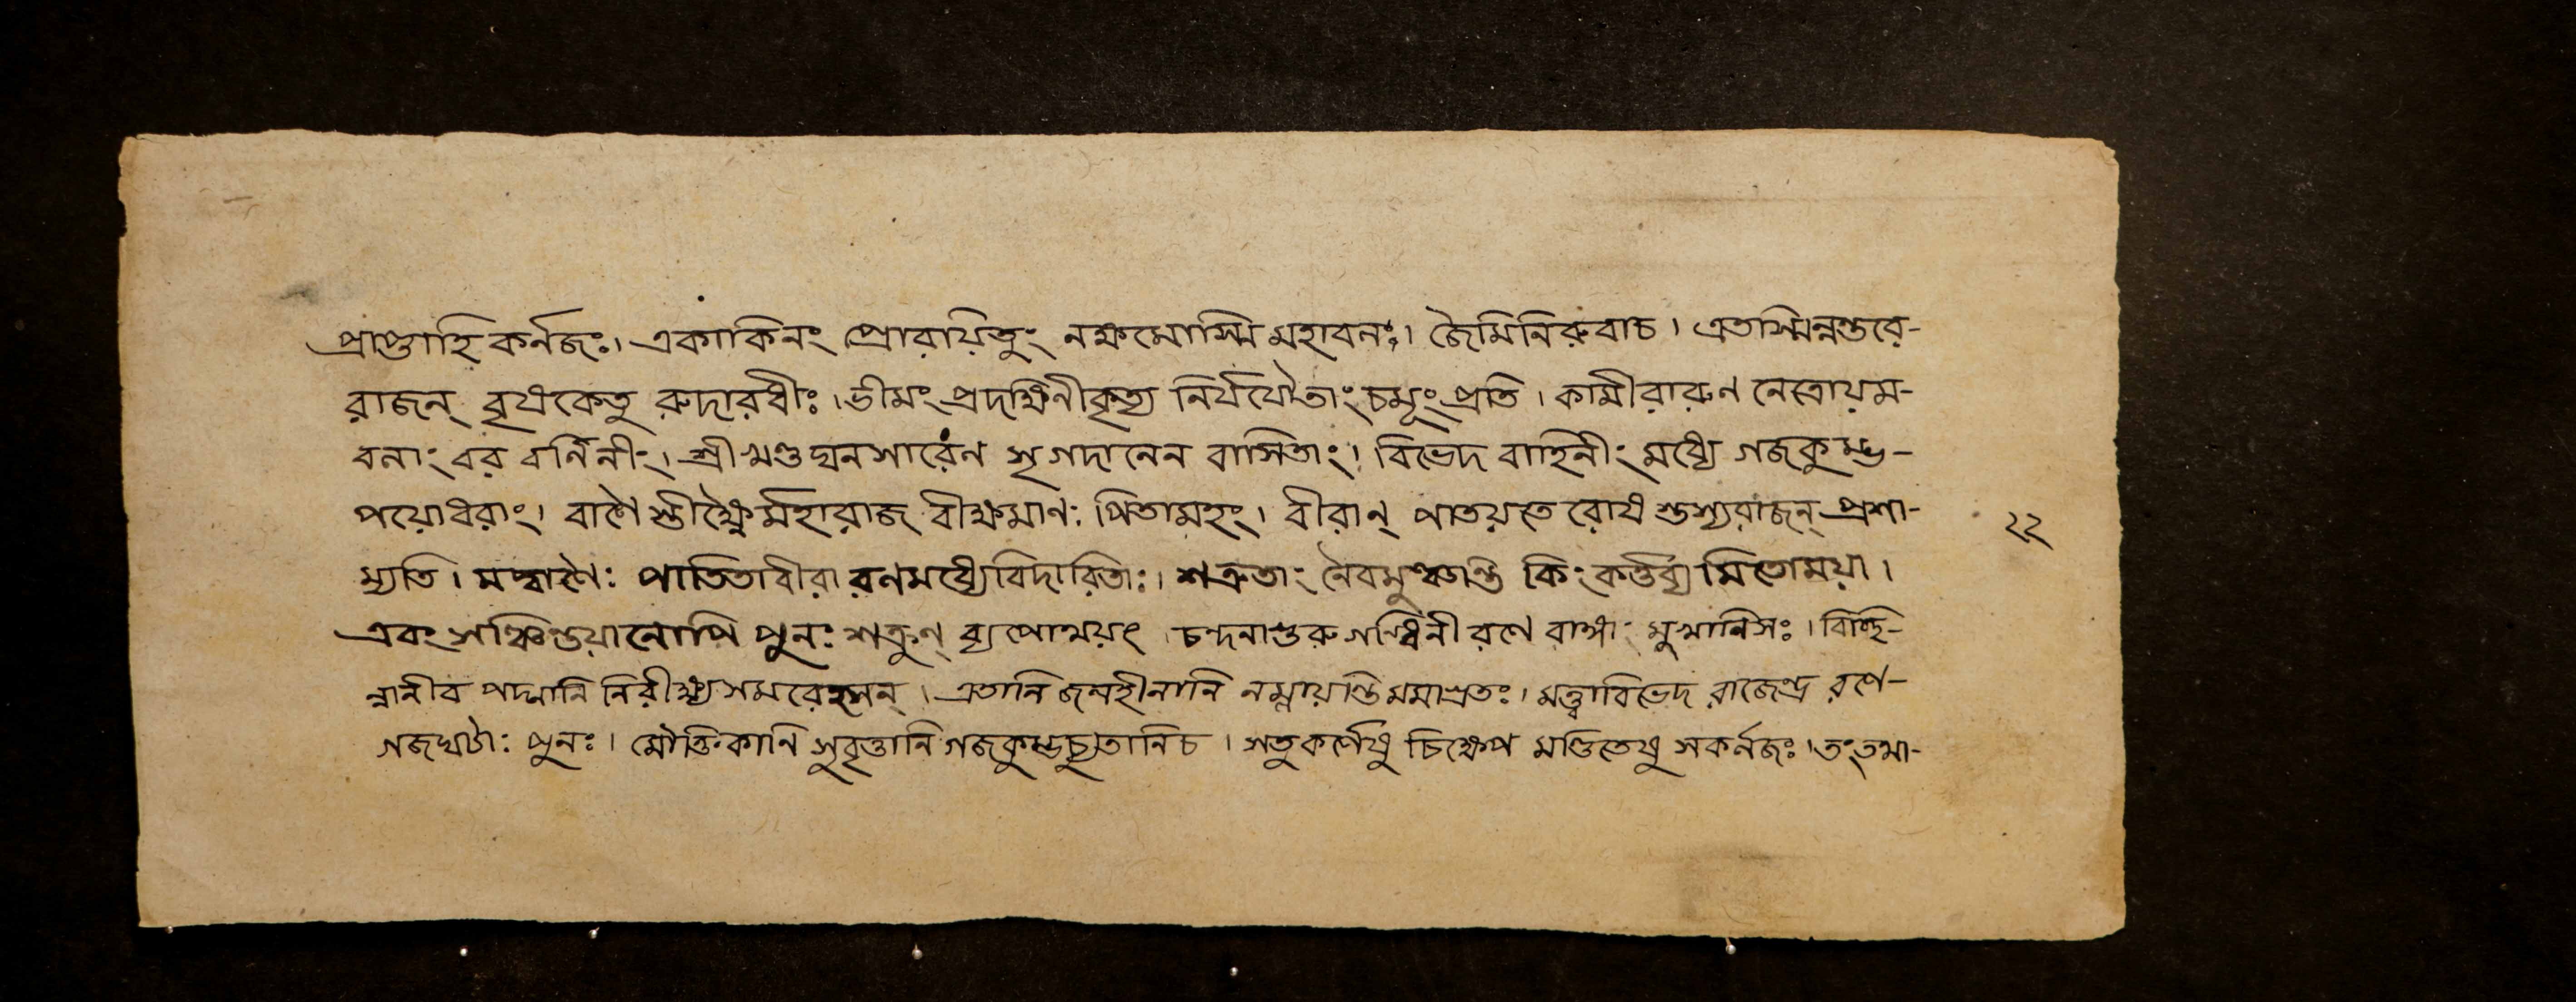 প্রাপ্তাহি কর্নজঃ। একাকিনং প্রোরায়িতুং নক্ষমোস্মি মহাবনঃ। জৈমিনিরুবাচ। এতস্মিন্নন্তরে-
রাজন্ বৃষকেতু রুদারধীঃ। ভীমং প্রদক্ষিনীকৃত্য নির্যযৌতাং চমূং প্রতি। কামীরারুণ নেত্রোয়ম-
বনাং বর বর্নিনীং। শ্রীখণ্ডঘনসারেণ মৃগদানেন বাসিতাং। বিভেদ বাহিনীং মধ্যে গজকুম্ভ-
পয়োধরাং। বাণৈ স্তীক্ষ্ণৈর্মহারাজ বীক্ষমাণঃ পিতামহং। বীরান্ পাতয়তে রোষ স্তস্যরাজন্ প্রশা-
২২
ম্যতি। মদ্বাণৈঃ পাতিতাবীরা রণমধ্যেবিদারিতাঃ। শত্রুতাং নৈবমুঞ্চন্তি কিং কর্ত্তব্য মিতোময়া।
এবং সঞ্চিন্তয়ানোপি পুনঃ শত্রুণ্ ব্যপোথয়ৎ। চন্দনাগুরু গন্ধিনী রণে রাজ্ঞাং মুখানিসঃ। বিচ্ছি-
ন্নানীব পদ্মানি নিরীক্ষ্য সমরেহসন্। এতানি জলহীনানি নম্লায়ন্তি মমাগ্রতঃ। মত্ত্বাবিভেদ রাজেন্দ্র রণে-
গজঘটাঃ পুনঃ। মৌক্তিকানি সুবৃত্তানি গজকুম্ভচ্যুতানিচ। শত্রুকর্ণেষু চিক্ষেপ মণ্ডিতেষু সকর্নজঃ। তংতমা-